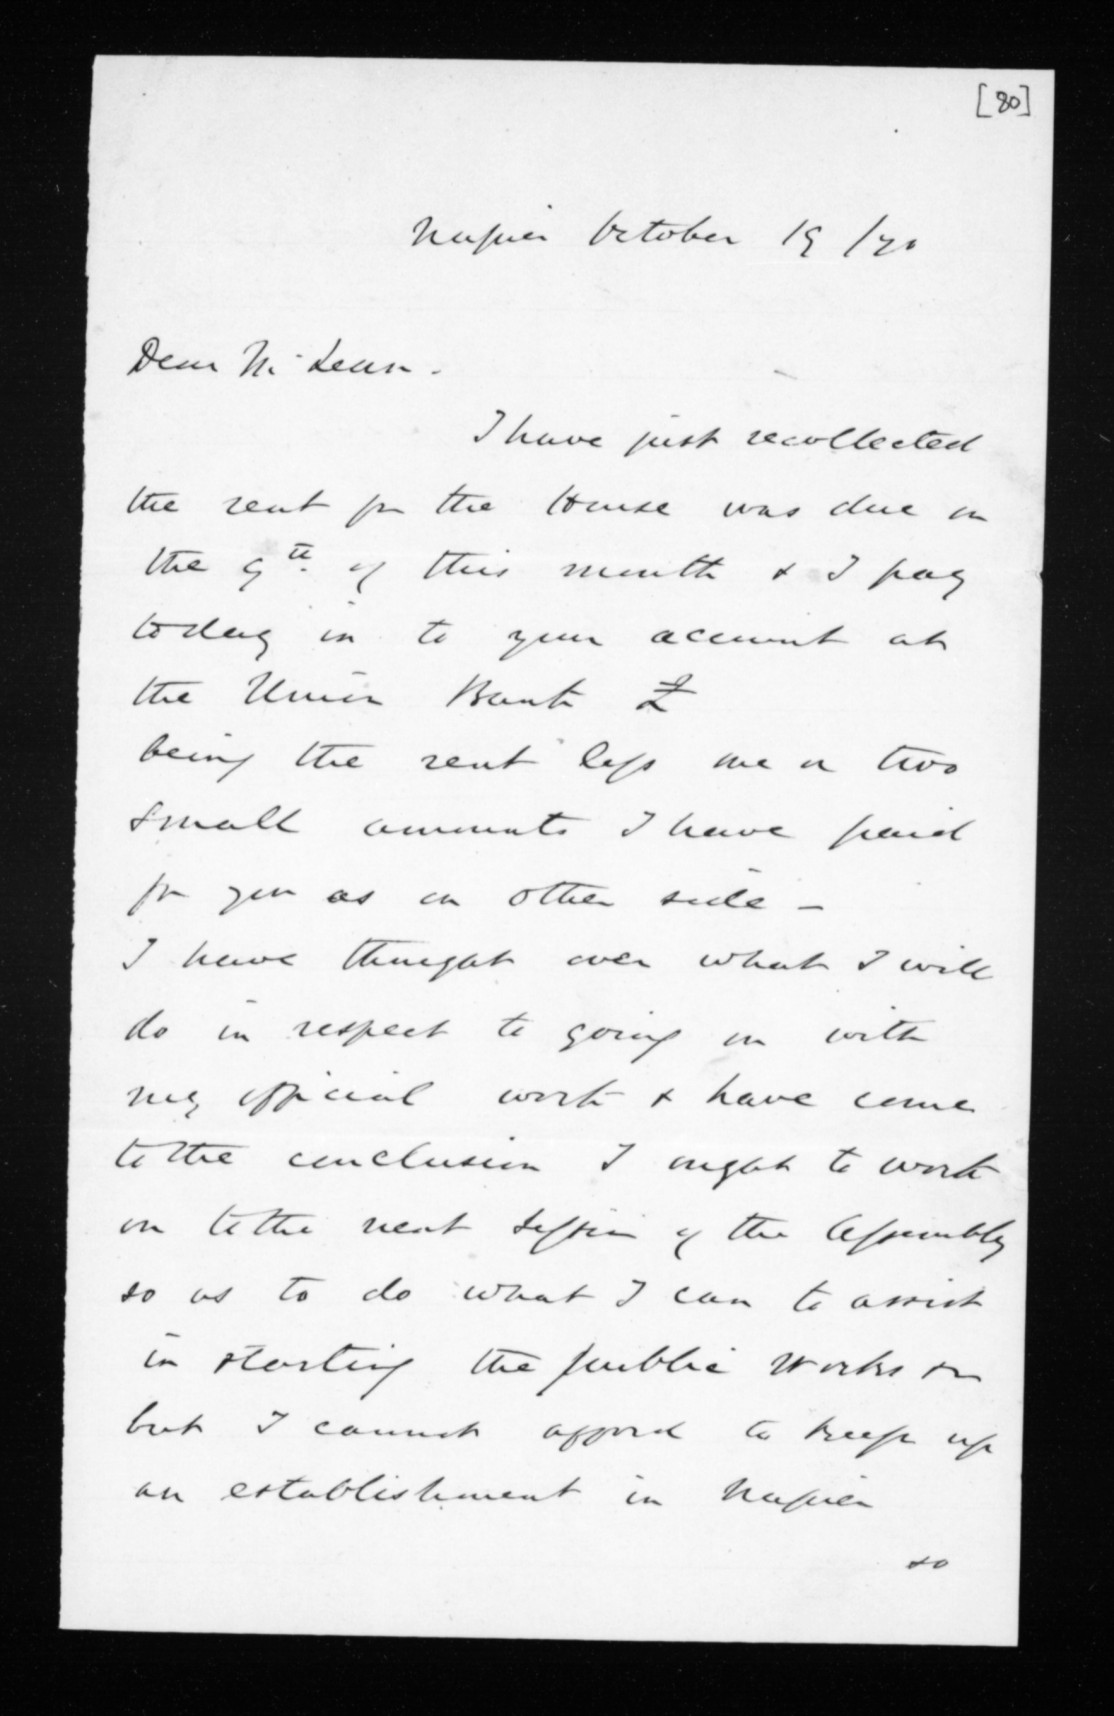 [80]
Napier October 19/70
Dear McLean.
I have just recollected
the rent for the House was due on
the 9th. of this month & I pay
today in to your account at
the Union Bank £
being the rent less one or two
small amounts I have paid
for you as on other side -
I have thought over what I will
do in respect to going on with
my official work & have come
to the conclusion I ought to work
on to the next Session of the Assembly
so as to do what I can to assist
in starting the public works
but I cannot afford to keep up
an establishment in Napier
so